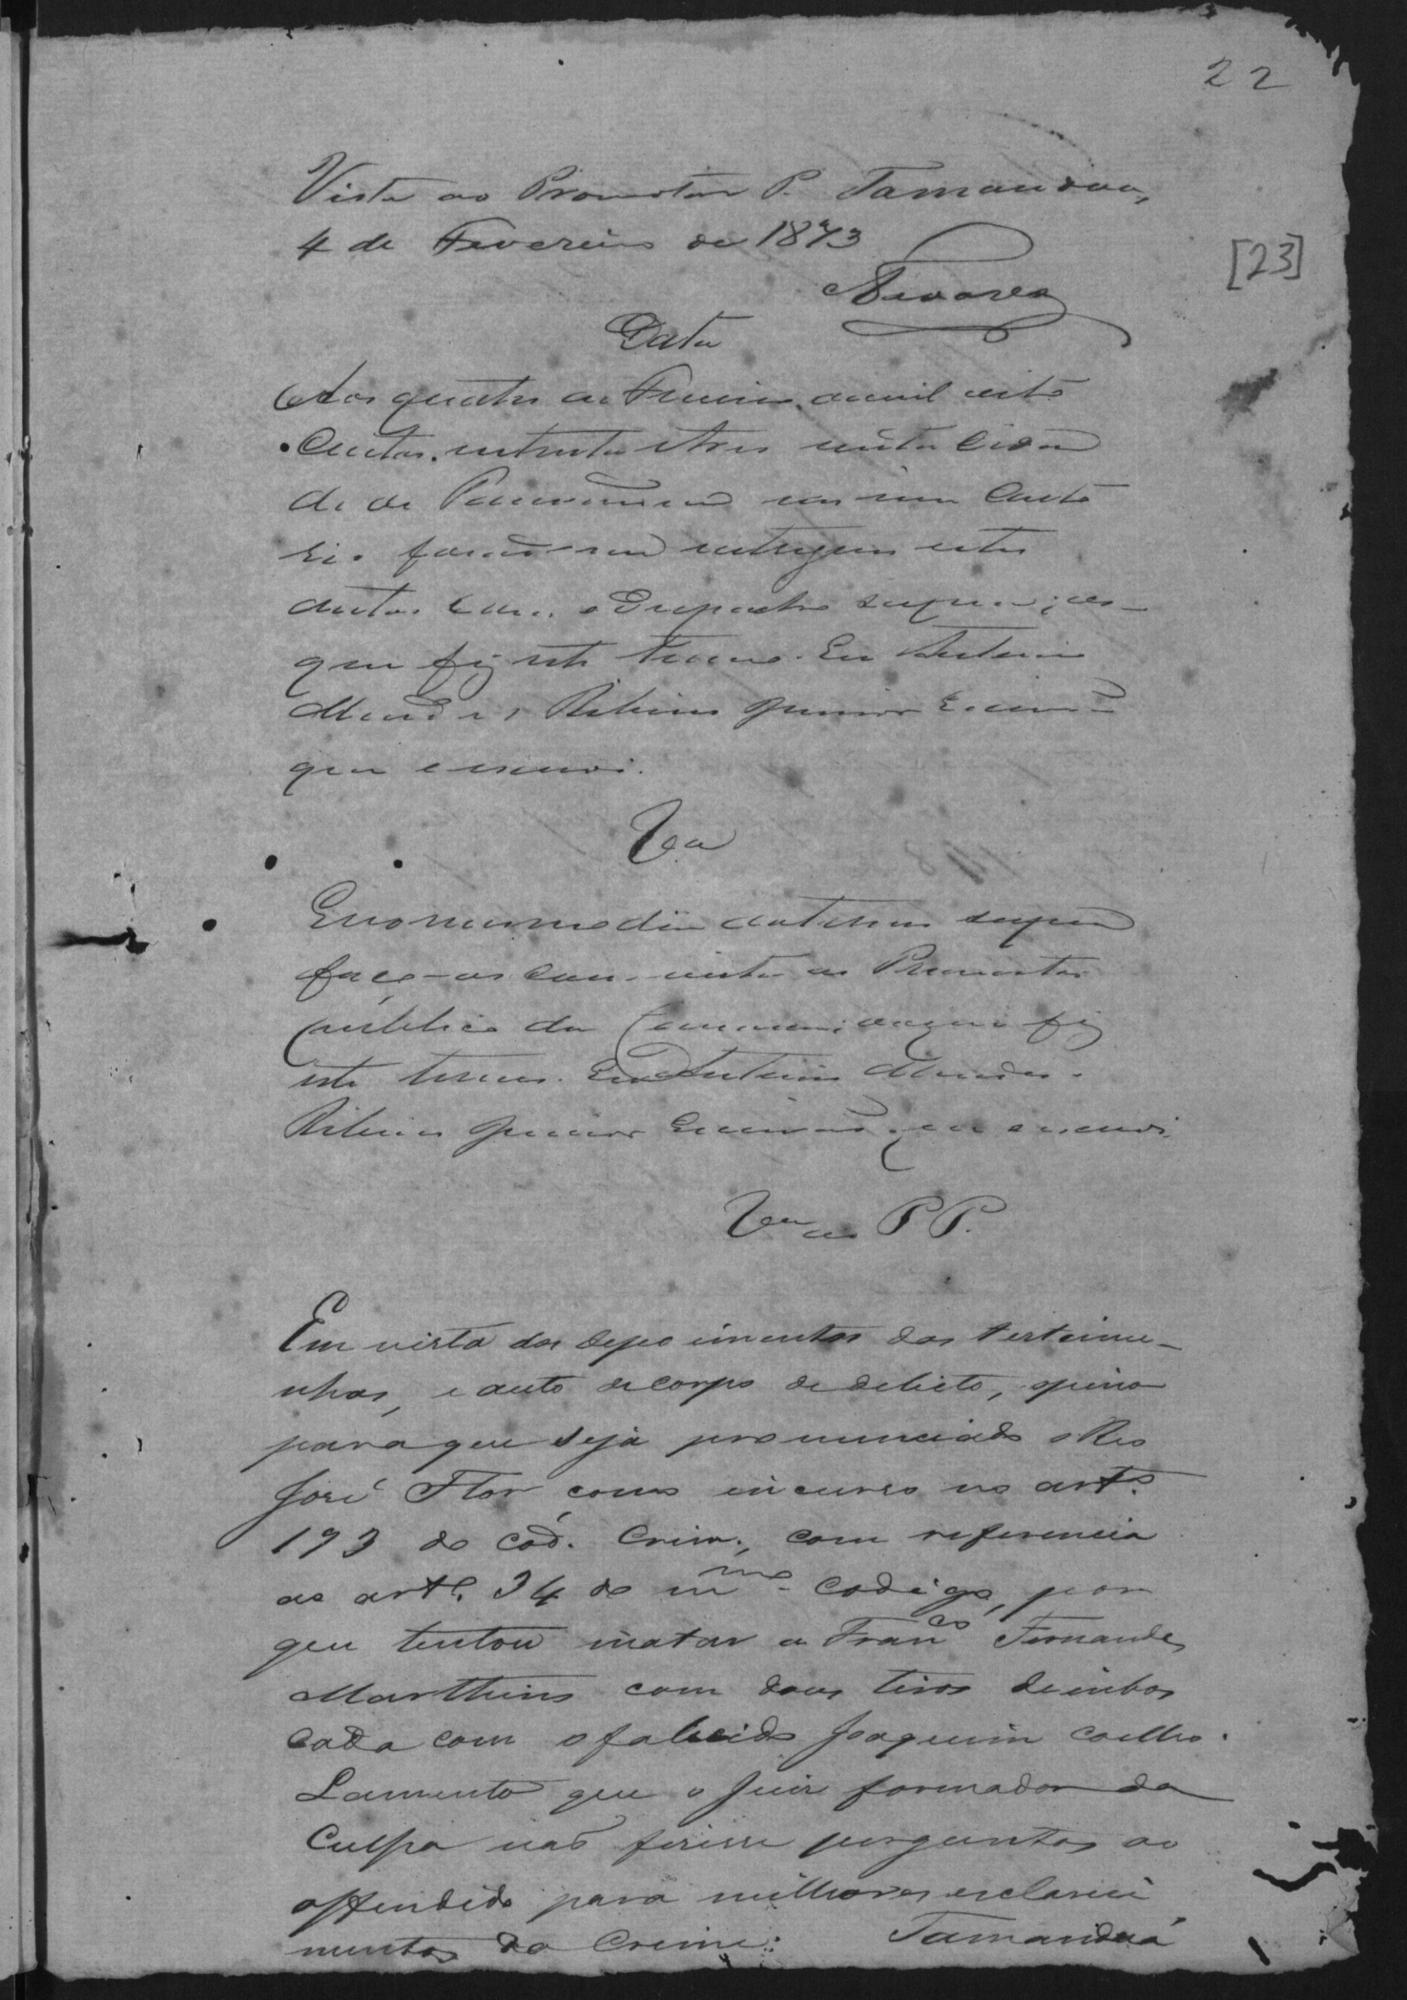 22
Vista ao Promotor P. Tamandua,
4 de Fevereiro de 1873
[23]
Data
Aos quatro de Fevereiro de mil oito
centos setenta e tres nesta Cida
de de Tamanduá em meu Carto
rio forão me entregues estes
autos com o Despacho supra; do
que fiz este termo. Eu Antonio
Mendes Ribeiro Junior Escrivão
que escrevi.
Va
E no mesmo dia data supra
faço-os com vista ao Promotor
publico da Comarca; do que fiz
este termo. Eu Antonio Mendes
Ribeiro Junior Escrivão que escrevi.
Va ao P P.
Em vista dos depoimentos das testemu-
nhas, e auto de corpo de delicto, opino
para que seja pronunciado o Reo
José Flor como incurso no arto.
193 do Cod. Crim., com referencia
ao arto. 34 do mmo. codigo, por
que tentou matar a Franco. Fernandes
Marthins com dous tiros de imbos
cada com o falecido Joaquim Coelho.
Lamento que o Juiz formador da
Culpa não fizesse perguntas ao
offendido para milhores esclareci
mentos do Crime. Tamanduá